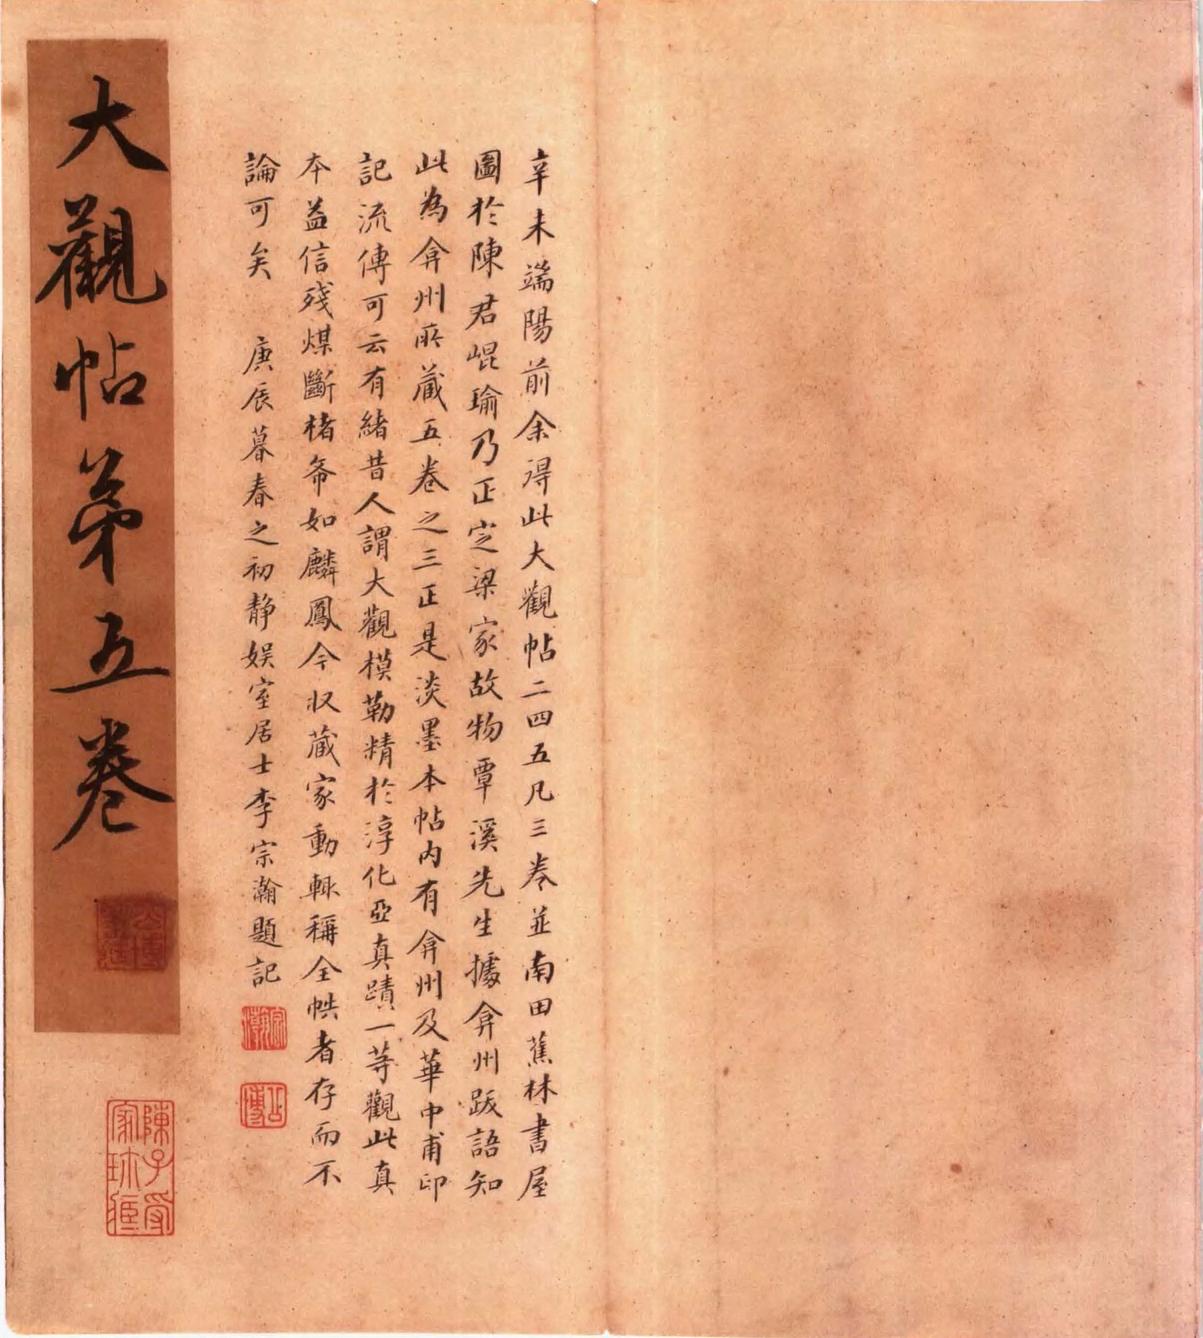 辛未端陽前余得此大觀帖二四五凡三卷並南田蕉林書屋
圖於陳君崐瑜乃正定梁家故物覃溪先生據弇州跋語知
此為弇州所藏五卷之三正是淡墨本帖內有弇州及華中甫印
記流傳可云有緒昔人謂大觀模勒精於淳化亞真蹟一等觀此真
本益信殘煤斷楮希如麟鳳今收藏家動輒稱全帙者存而不
論可矣　庚辰暮春之初靜娛室居士李宗瀚題記
宗瀚
公博
大觀帖第五卷
陳子受家珍藏